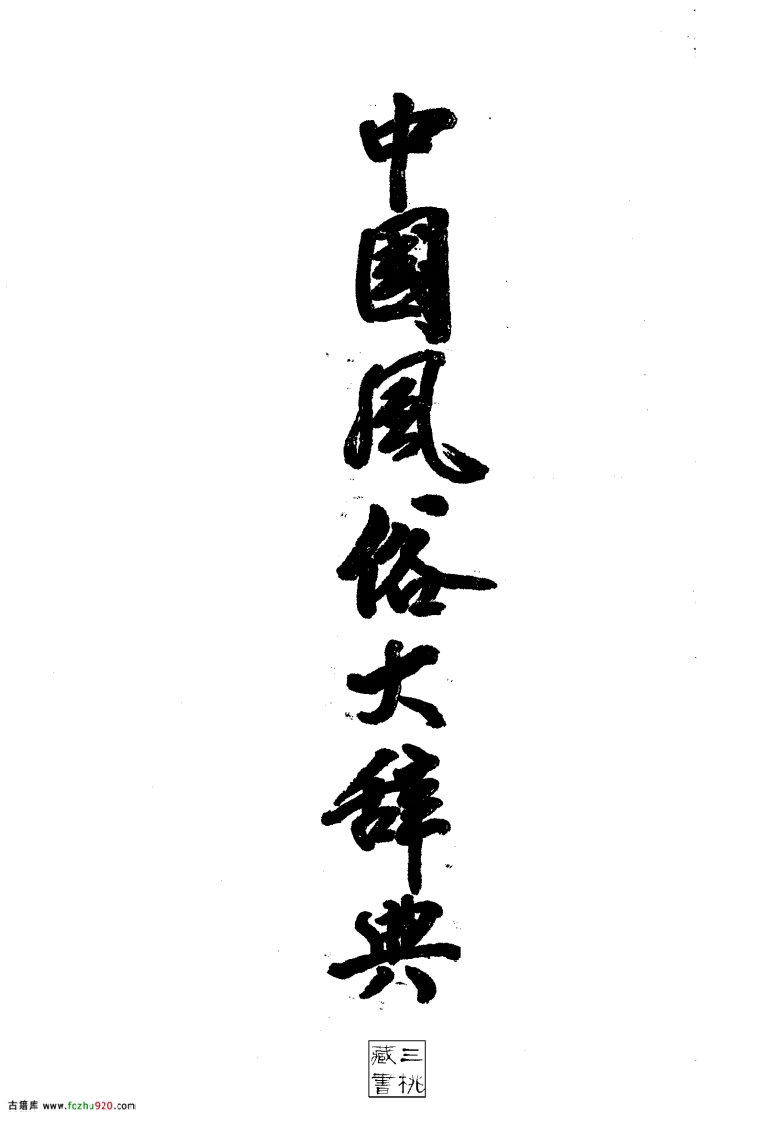 中国风俗大辞典
三桃
藏書
古籍库 www.fczhu920.com